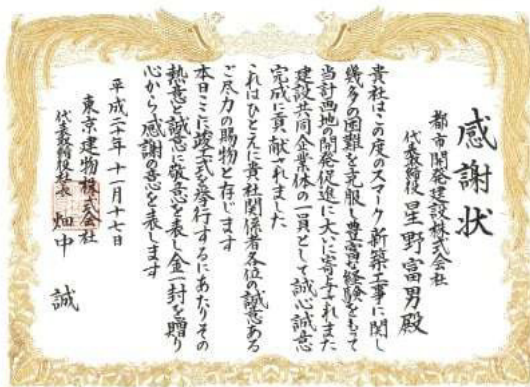 感謝状
都市開発建設株式会社
代表取締役 星野富男殿
貴社はこの度のスマーク新築工事に関し
幾多の困難を克服し豊富な経験をもって
当計画地の開発促進に大いに寄与されまた
建設共同企業体の一員として誠心誠意
完成に貢献されました
これはひとえに貴社関係者各位の誠意ある
ご尽力の賜物と存じます
本日ここに竣工式を挙行するにあたりその
熱意と誠意に敬意を表し金一封を贈り
心から感謝の意を表します
平成二十年十一月十七日
東京建物株式会社
代表取締役社長 畑中 誠